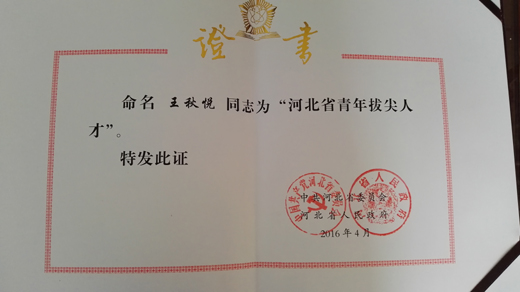 證書
命名 王秋悦 同志为“河北省青年拔尖人
才”。
特发此证
中共河北省委员会
河北省人民政府
2016年4月